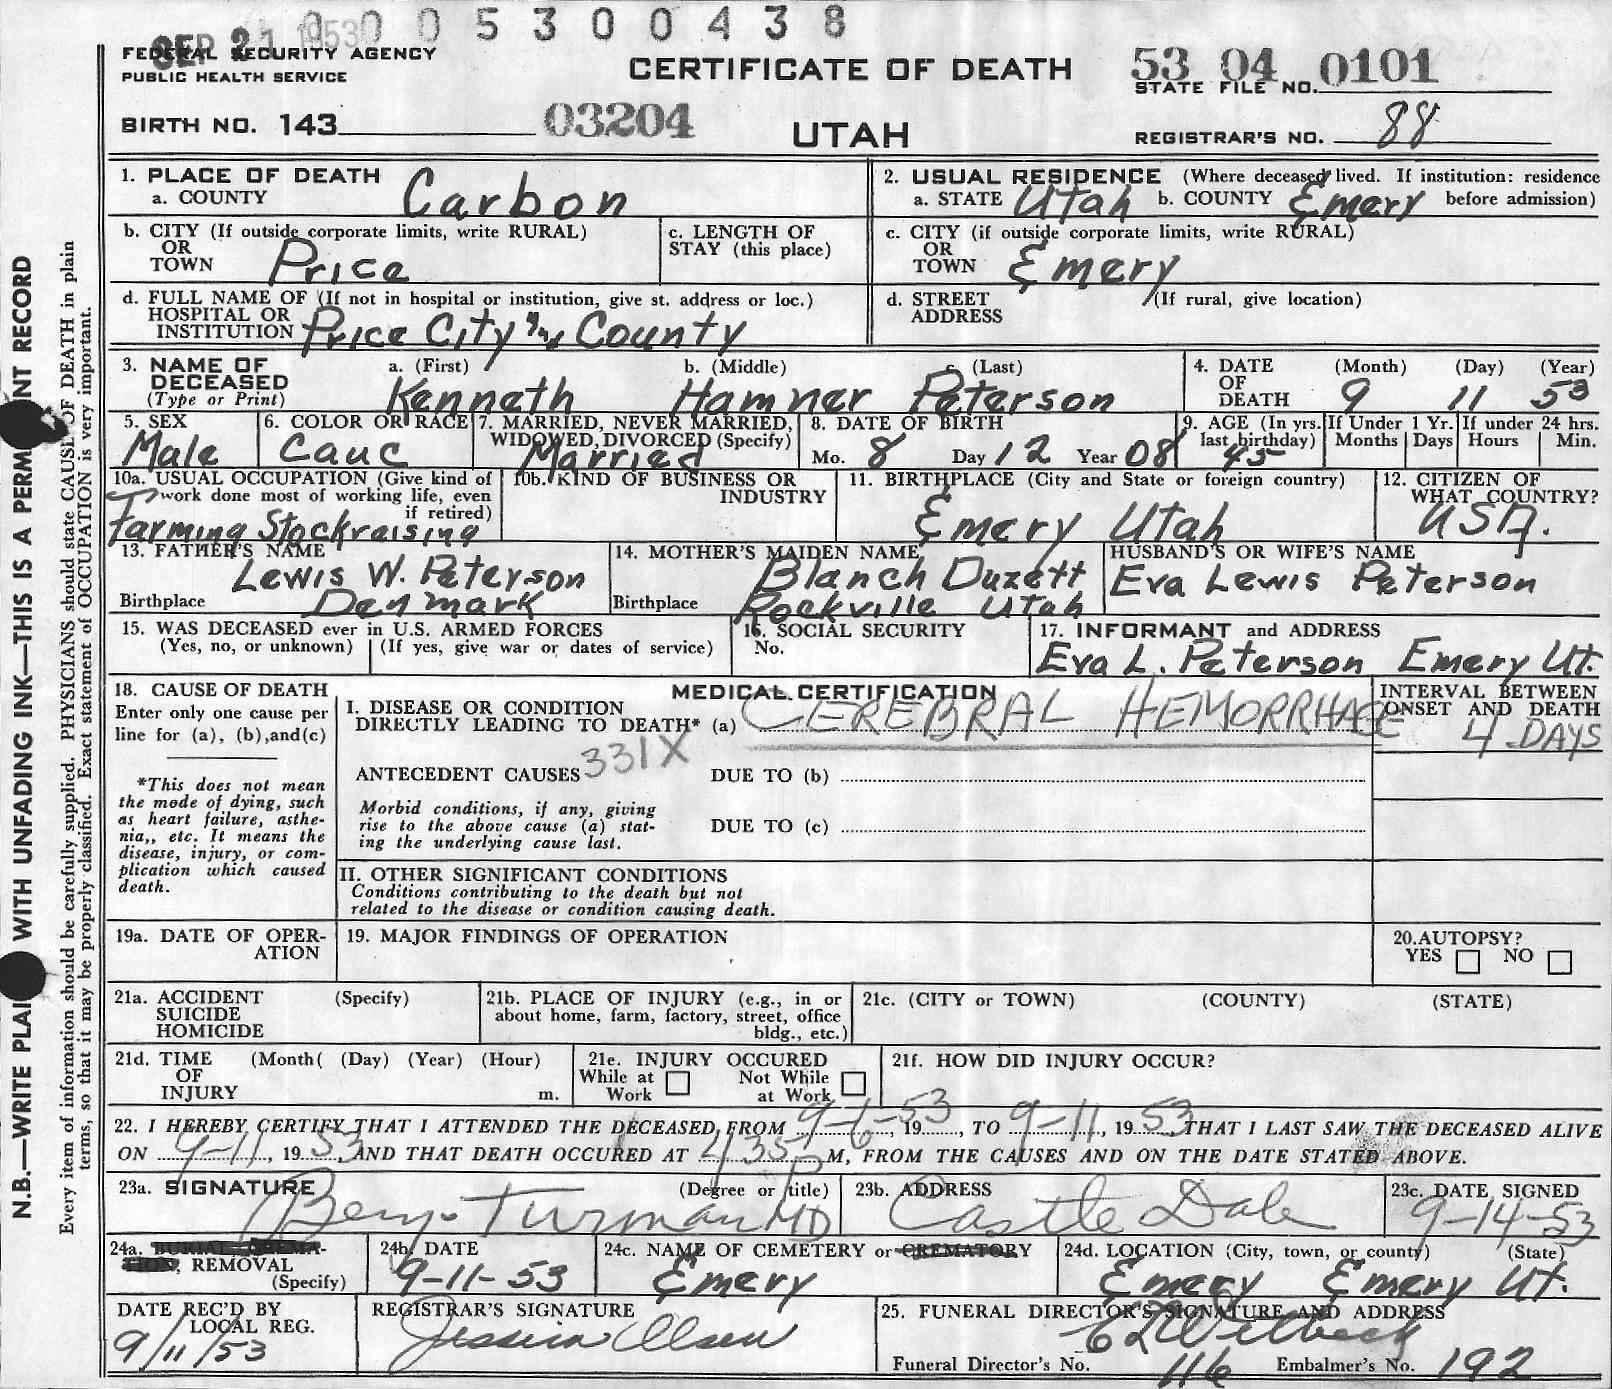 0 0 0 5 3 0 0 4 3 8
SEP 21 1953
FEDERAL SECURITY AGENCY
PUBLIC HEALTH SERVICE
CERTIFICATE OF DEATH
53 04 0101
STATE FILE NO.
BIRTH NO. 143 03204
UTAH
REGISTRAR'S NO. 88
N.B.—WRITE PLAI WITH UNFADING INK—THIS IS A PERM NT RECORD
Every item of information should be carefully supplied. PHYSICIANS should state CAUSE OF DEATH in plain
terms, so that it may be properly classified. Exact statement of OCCUPATION is very important.
1. PLACE OF DEATH
a. COUNTY Carbon
2. USUAL RESIDENCE (Where deceased lived. If institution: residence
a. STATE Utah b. COUNTY Emery before admission)
b. CITY (If outside corporate limits, write RURAL)
OR
TOWN Price
c. LENGTH OF
STAY (this place)
c. CITY (if outside corporate limits, write RURAL)
OR
TOWN Emery
d. FULL NAME OF (If not in hospital or institution, give st. address or loc.)
HOSPITAL OR
INSTITUTION Price City and County
d. STREET (If rural, give location)
ADDRESS
3. NAME OF a. (First) b. (Middle) c. (Last)
DECEASED
(Type or Print) Kenneth Hamner Peterson
4. DATE (Month) (Day) (Year)
OF
DEATH 9 11 53
5. SEX
Male
6. COLOR OR RACE
Cauc
7. MARRIED, NEVER MARRIED,
WIDOWED, DIVORCED (Specify)
Married
8. DATE OF BIRTH
Mo. 8 Day 12 Year 08
9. AGE (In yrs.
last birthday)
45
If Under 1 Yr.
Months Days
If under 24 hrs.
Hours Min.
10a. USUAL OCCUPATION (Give kind of
work done most of working life, even
if retired)
Farming Stockraising
10b. KIND OF BUSINESS OR
INDUSTRY
11. BIRTHPLACE (City and State or foreign country)
Emery Utah
12. CITIZEN OF
WHAT COUNTRY?
USA.
13. FATHER'S NAME
Lewis W. Peterson
Birthplace Denmark
14. MOTHER'S MAIDEN NAME
Blanch Duzett
Birthplace Rockville Utah
HUSBAND'S OR WIFE'S NAME
Eva Lewis Peterson
15. WAS DECEASED ever in U.S. ARMED FORCES
(Yes, no, or unknown) (If yes, give war or dates of service)
16. SOCIAL SECURITY
No.
17. INFORMANT and ADDRESS
Eva L. Peterson Emery Ut.
18. CAUSE OF DEATH
Enter only one cause per
line for (a), (b),and(c)
*This does not mean
the mode of dying, such
as heart failure, asthe-
nia,, etc. It means the
disease, injury, or com-
plication which caused
death.
MEDICAL CERTIFICATION
I. DISEASE OR CONDITION
DIRECTLY LEADING TO DEATH* (a) CEREBRAL HEMORRHAGE
331X
ANTECEDENT CAUSES DUE TO (b)
Morbid conditions, if any, giving
rise to the above cause (a) stat-
ing the underlying cause last.
DUE TO (c)
INTERVAL BETWEEN
ONSET AND DEATH
4 DAYS
II. OTHER SIGNIFICANT CONDITIONS
Conditions contributing to the death but not
related to the disease or condition causing death.
19a. DATE OF OPER-
ATION
19. MAJOR FINDINGS OF OPERATION
20.AUTOPSY?
YES NO
21a. ACCIDENT (Specify)
SUICIDE
HOMICIDE
21b. PLACE OF INJURY (e.g., in or
about home, farm, factory, street, office
bldg., etc.)
21c. (CITY or TOWN) (COUNTY) (STATE)
21d. TIME (Month( (Day) (Year) (Hour)
OF
INJURY m.
21e. INJURY OCCURED
While at Not While
Work at Work
21f. HOW DID INJURY OCCUR?
22. I HEREBY CERTIFY THAT I ATTENDED THE DECEASED FROM 9-6-, 19 53, TO 9-11, 19 53 THAT I LAST SAW THE DECEASED ALIVE
ON 9-11, 19 53, AND THAT DEATH OCCURED AT 4 35 P M, FROM THE CAUSES AND ON THE DATE STATED ABOVE.
23a. SIGNATURE (Degree or title)
Benj. Turman MD
23b. ADDRESS
Castle Dale
23c. DATE SIGNED
9-14-53
24a. BURIAL, CREMA-
TION, REMOVAL
(Specify)
24b. DATE
9-11-53
24c. NAME OF CEMETERY or CREMATORY
Emery
24d. LOCATION (City, town, or county) (State)
Emery Emery Ut.
DATE REC'D BY
LOCAL REG.
9/11/53
REGISTRAR'S SIGNATURE
Jessica Olsen
25. FUNERAL DIRECTOR'S SIGNATURE AND ADDRESS
Funeral Director's No. 116 Embalmer's No. 192